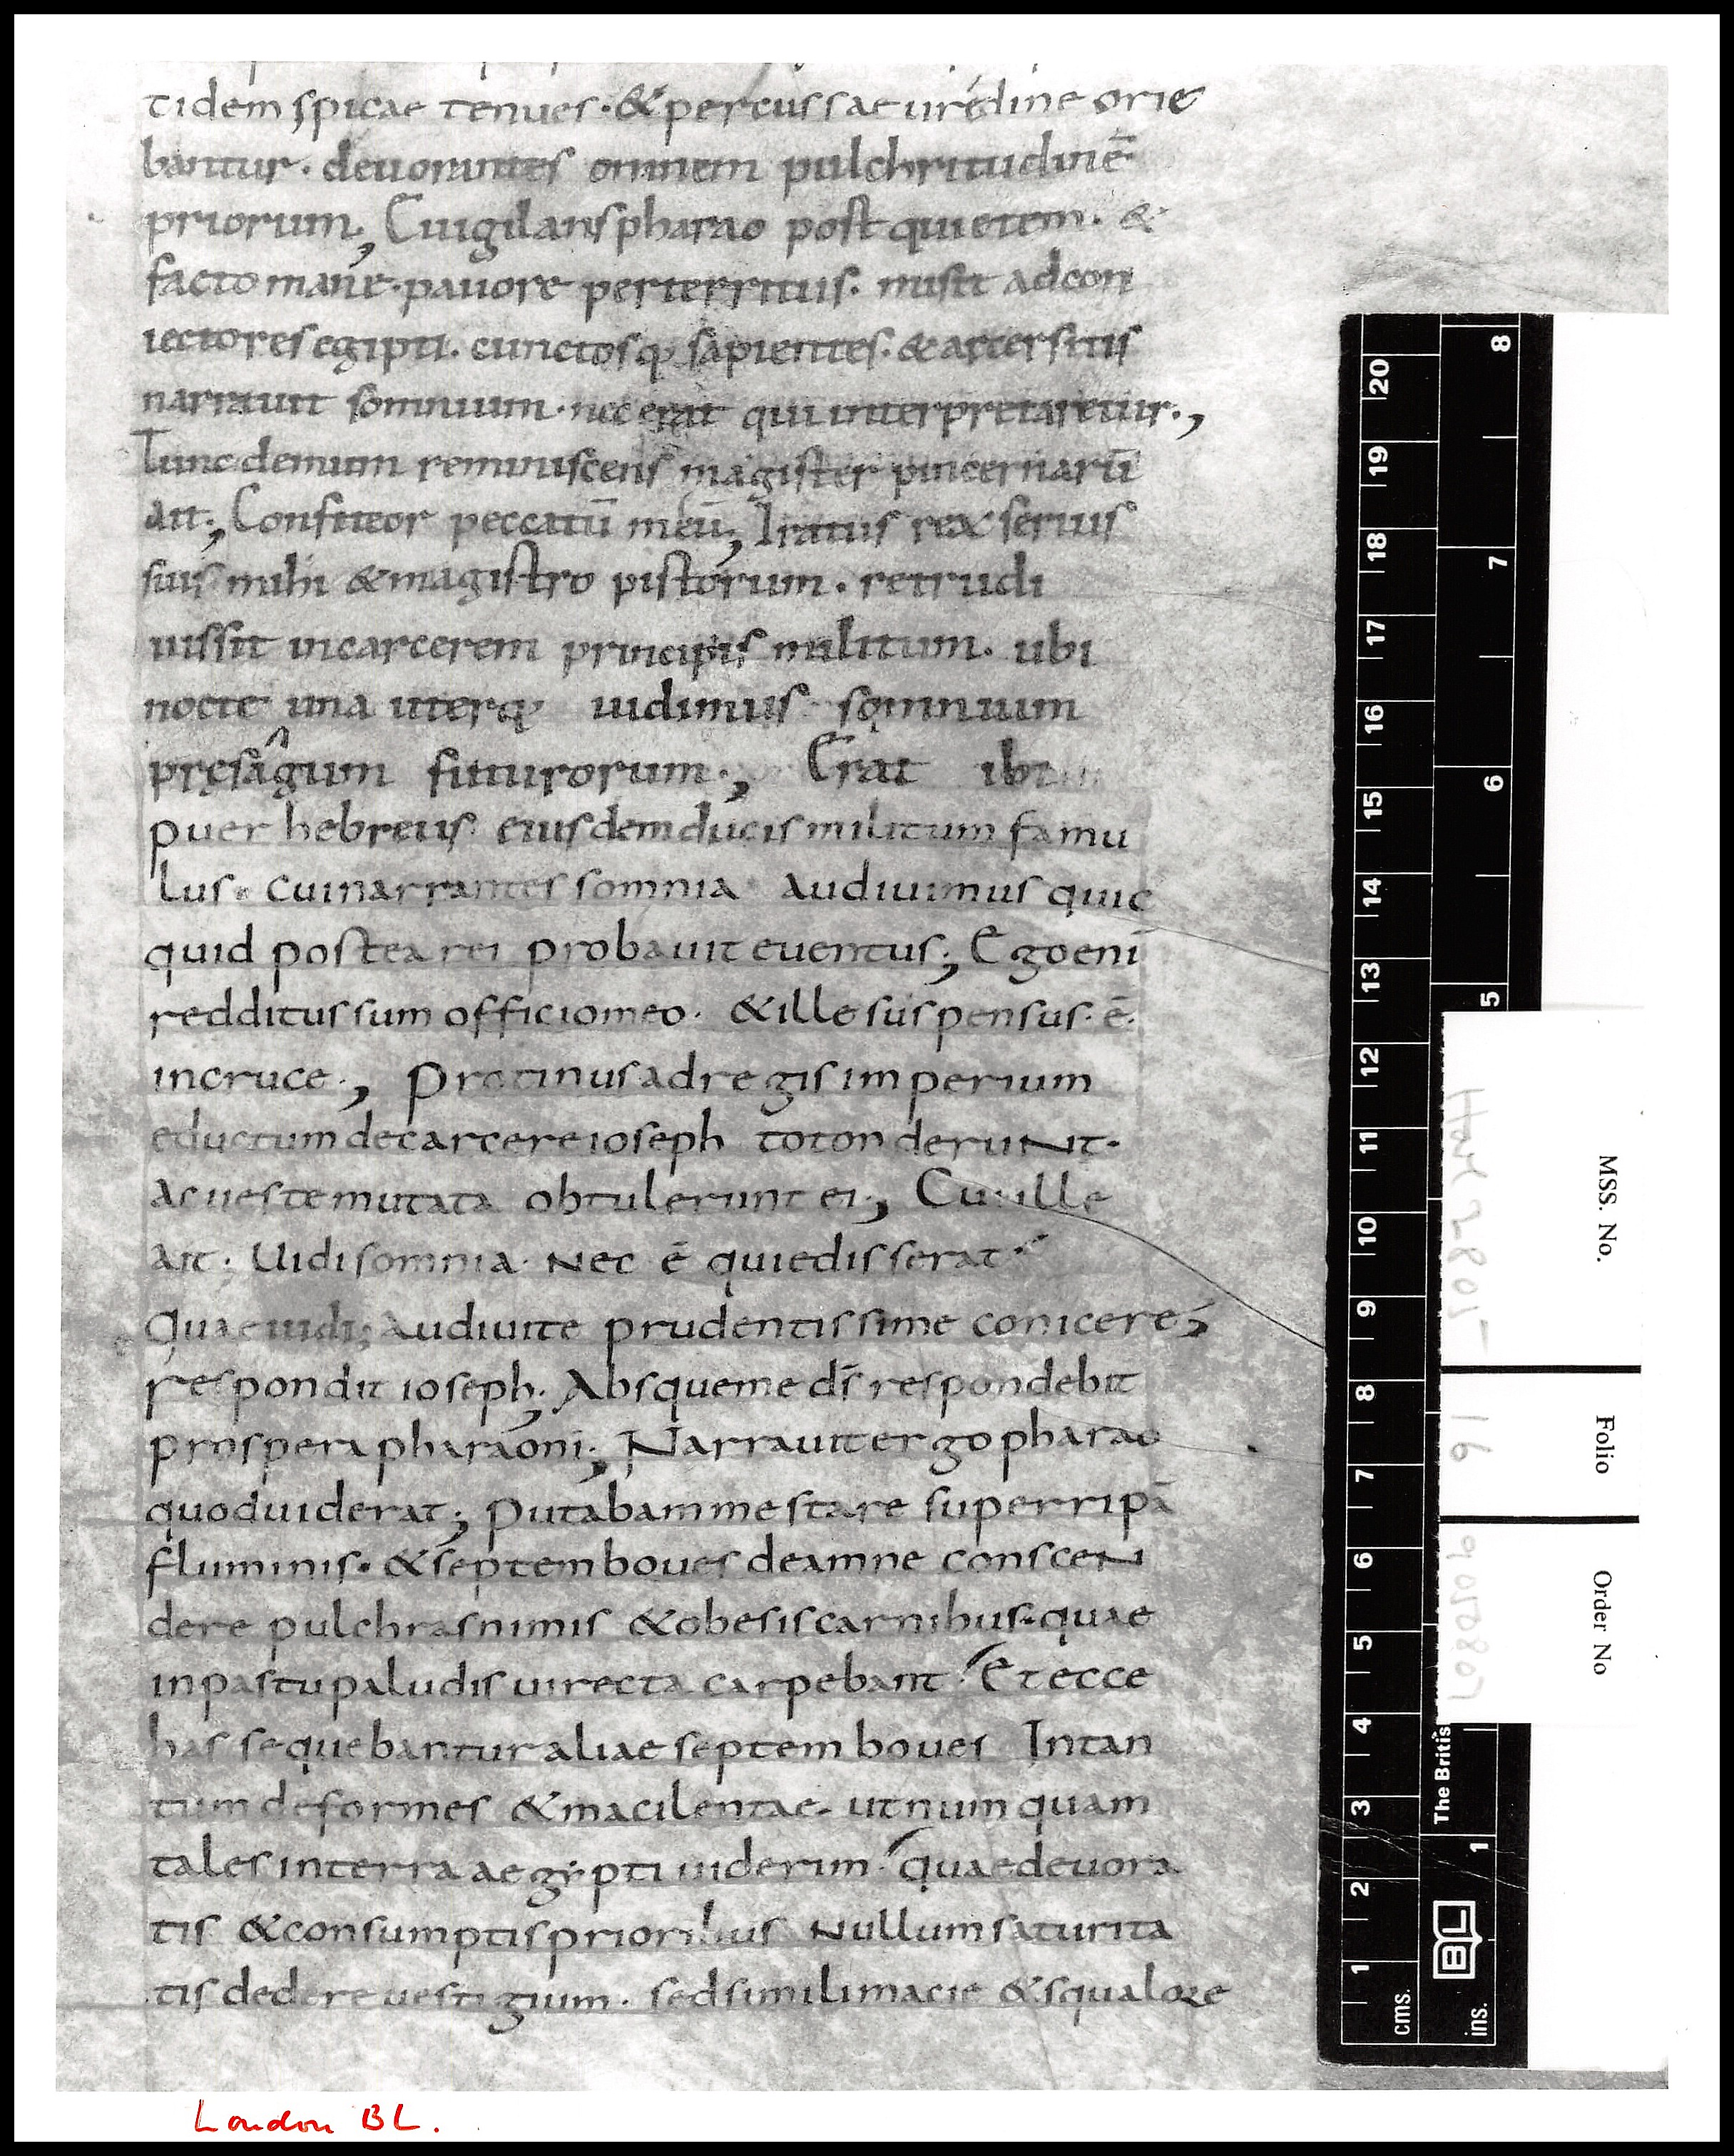 tidem spicae tenues · & percussae uredine orie
bantur · deuorantes omnem pulchritudinē
priorum; Euigilans pharao post quietem · &
facto mane · pauore perterritus · misit ad con
iectores egipti · cunctosq; sapientes · & accersitis
narrauit somnium · nec erat qui interpretaretur·,
Tunc demum reminiscens magister pincernarū
ait; Confiteor peccatū meū; Iratus rex seruis
suis mihi & magistro pistorum · retrudi
iussit in carcerem principis militum · ubi
nocte una uterq; uidimus somnium
pręsagum futurorum·, Erat ibi
puer hebreus eiusdem ducis militum famu
lus · cui narrantes somnia audiuimus quic
quid postea rei probauit euentus; Ego enī
redditus sum officio meo · & ille suspensus · ē
in cruce·, Protinus ad regis imperium
eductum de carcere ioseph totonderunt ·
ac ueste mutata obtulerunt ei·, Cui ille
ait · Uidi somnia · nec ē qui edisserat
Quae uidi; Audiui te prudentissime conicere;
respondit ioseph; Absque me ds̄ respondebit
prospera pharaoni; Narrauit ergo pharao
quod uiderat; Putabam me stare super ripā
fluminis · & septem boues de amne conscen
dere pulchras nimis & obesis carnibus · quae
in pastu paludis uirecta carpebant · Et ecce
has sequebantur aliae septem boues Intan
tum deformes & macilentae · ut numquam
tales in terra aegypti uiderim · quae deuora
tis & consumptis prioribus Nullum saturita
tis dedere uestigium · sed simili macie & squalore
London BL.
MSS. No.
Harl 2805
Folio
16
Order No
9050807
The Britis
BL
cms.
1 2 3 4 5 6 7 8 9 10 11 12 13 14 15 16 17 18 19 20
ins.
1 5 6 7 8